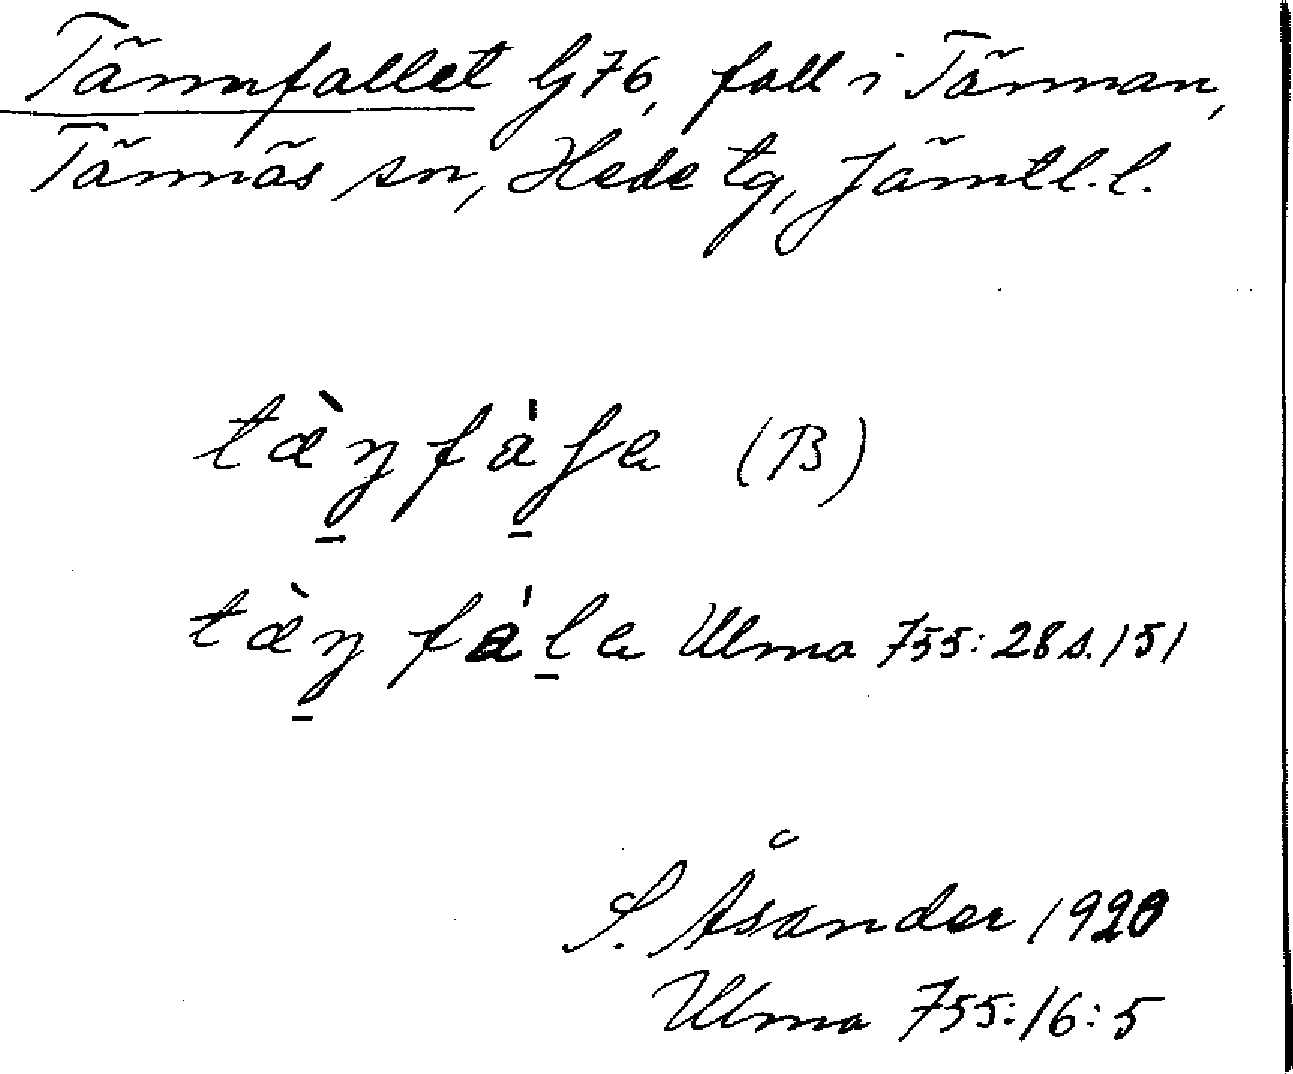 Tännfallet G76, fall i Tännan,
Tännäs sn, Hede tg, Jämtl.l.
(B)
Ulma 755:28 s. 151
S. Åsander 1920
Ulma 755:16:5